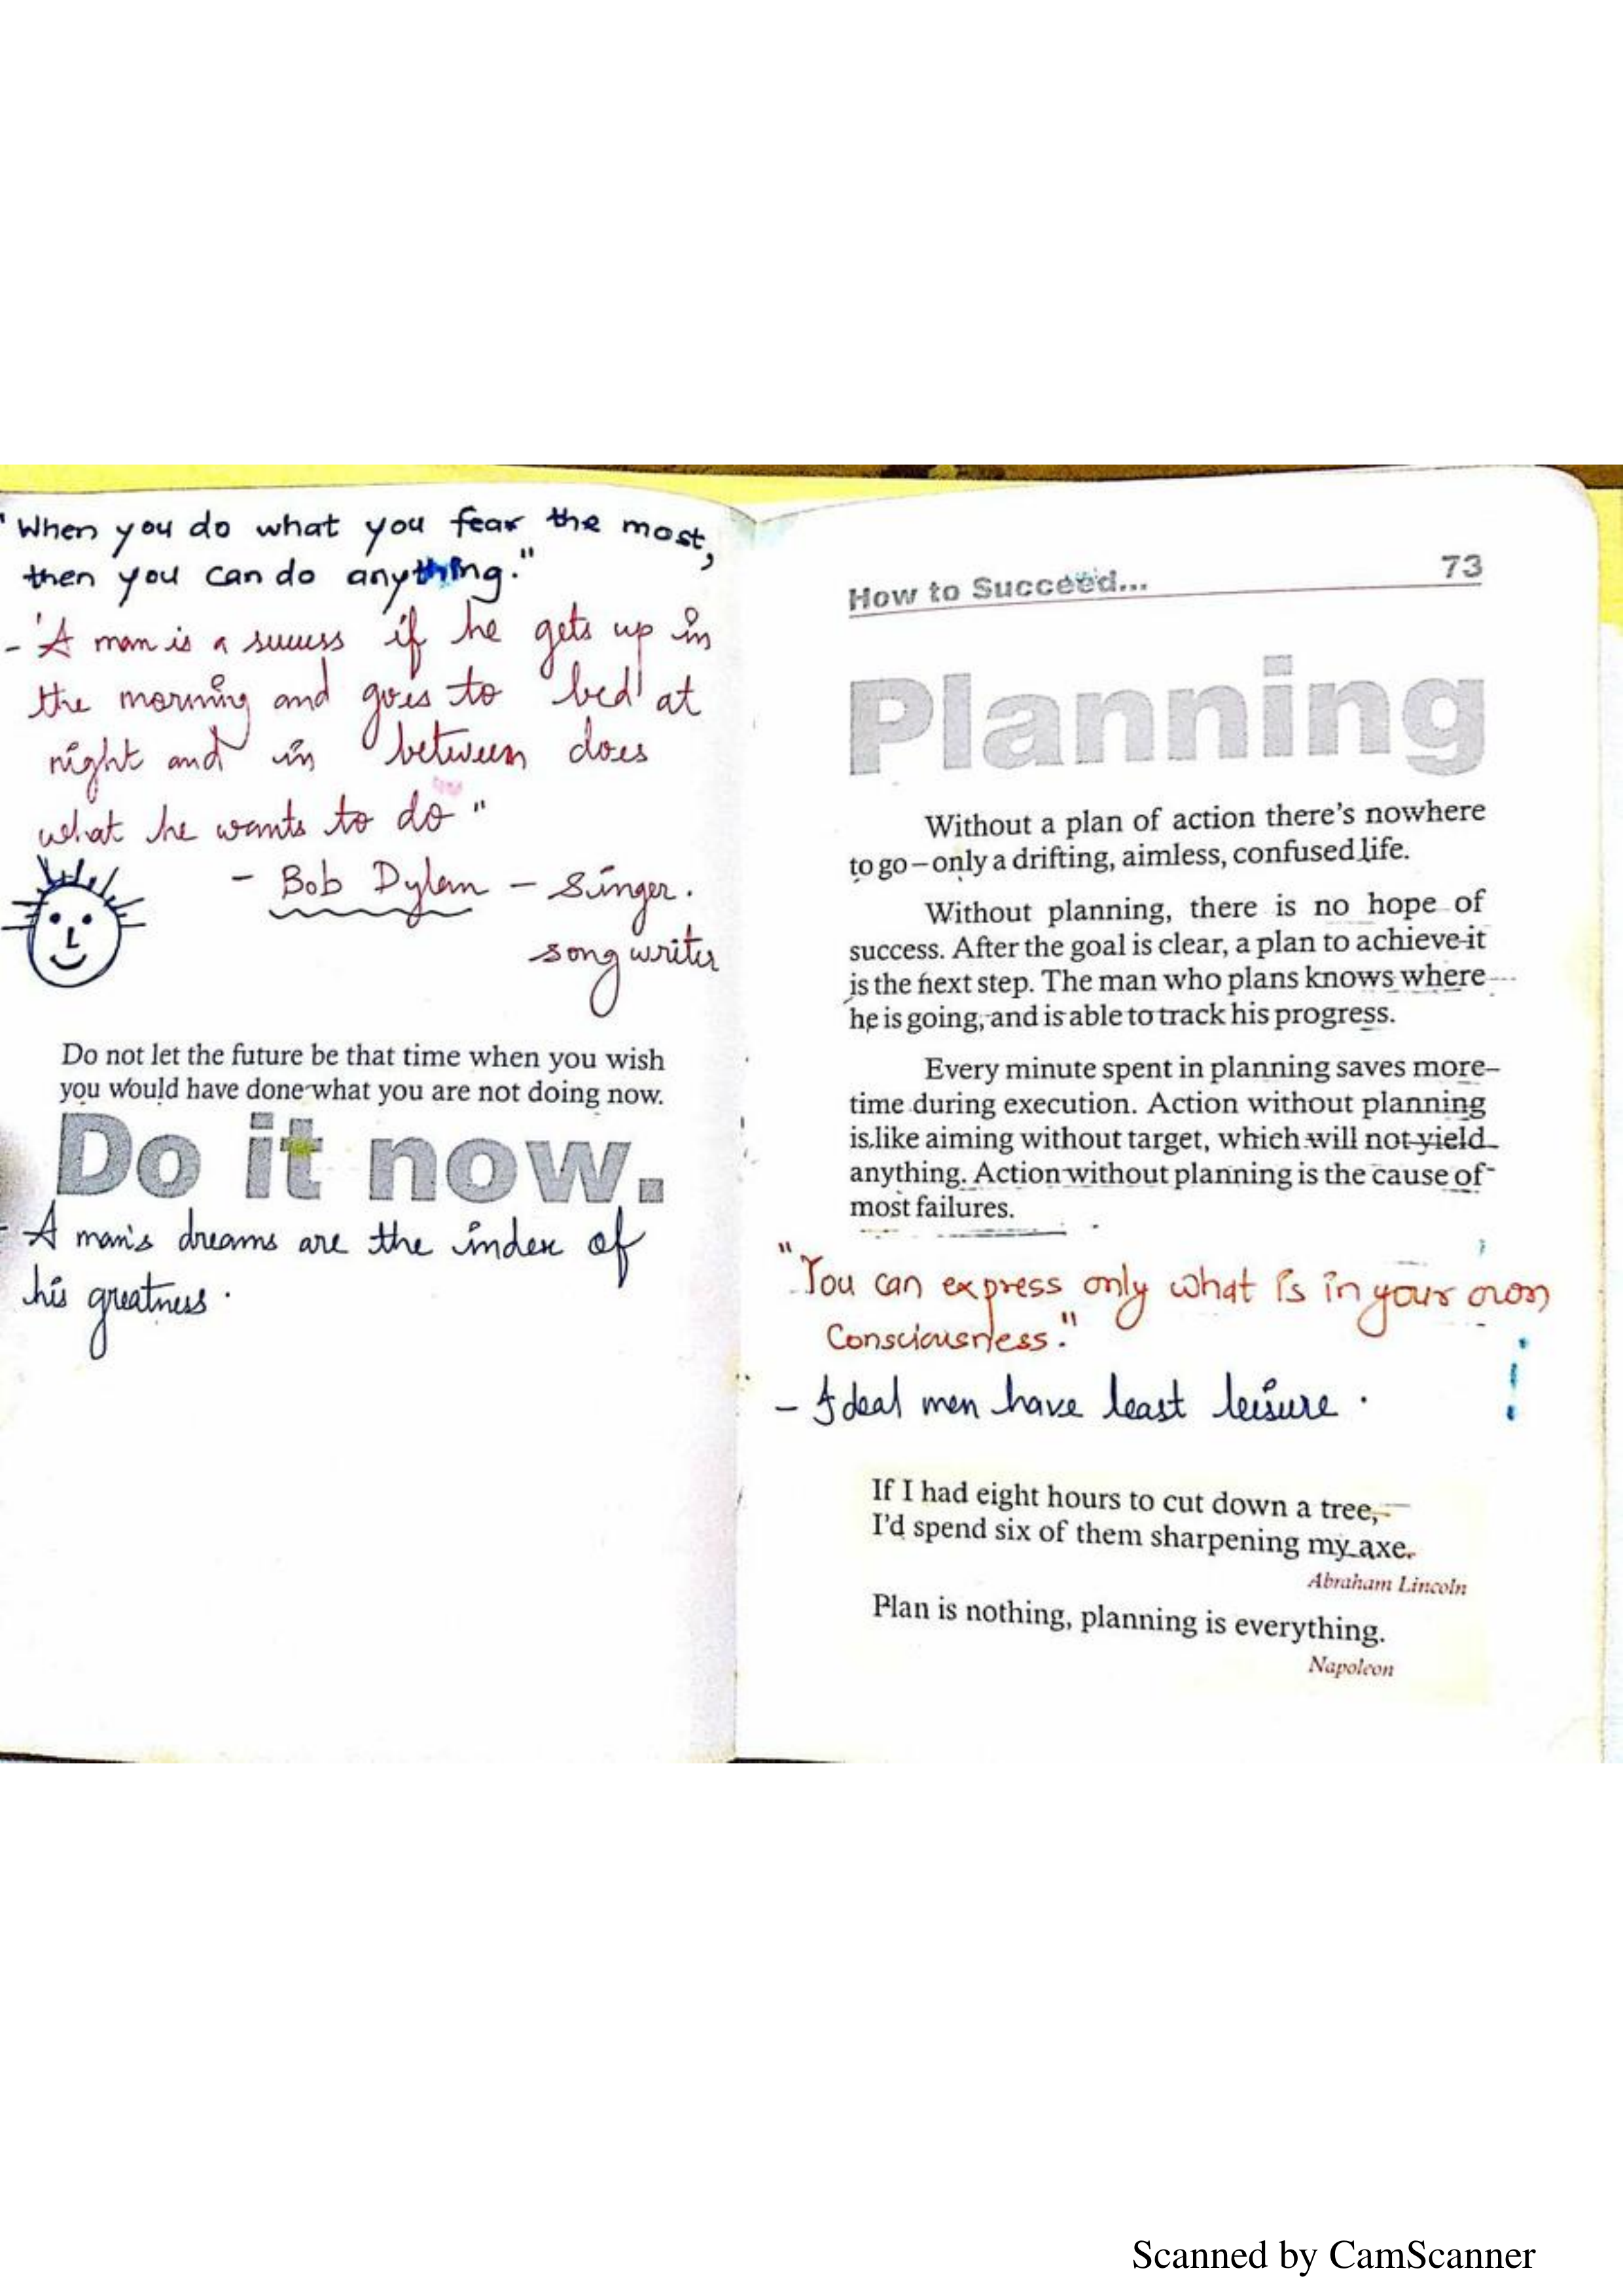 "When you do what you fear the most,
then you can do anything."
- 'A man is a success if he gets up in
the morning and goes to bed at
night and in between does
what he wants to do"
- Bob Dylan - Singer.
song writer
Do not let the future be that time when you wish
you would have done what you are not doing now.
Do it now.
- A man's dreams are the index of
his greatness.
How to Succeed... 73
Planning
Without a plan of action there's nowhere
to go – only a drifting, aimless, confused life.
Without planning, there is no hope of
success. After the goal is clear, a plan to achieve it
is the next step. The man who plans knows where
he is going, and is able to track his progress.
Every minute spent in planning saves more
time during execution. Action without planning
is like aiming without target, which will not yield
anything. Action without planning is the cause of
most failures.
"You can express only what is in your own
Consciousness."
- Ideal men have least leisure.
If I had eight hours to cut down a tree,
I'd spend six of them sharpening my axe.
Abraham Lincoln
Plan is nothing, planning is everything.
Napoleon
Scanned by CamScanner